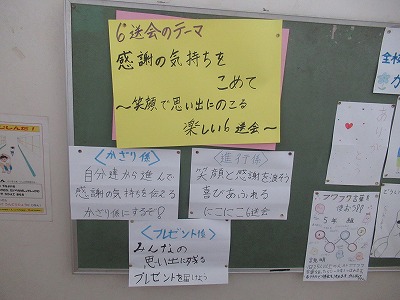 6送会のテーマ
感謝の気持ちを
こめて
～笑顔で思い出にのこる
楽しい6送会～
<かざり係>
自分達から進んで
感謝の気持ちを伝える
かざり係にするぞ!
<進行係>
笑顔と感謝を渡そう
喜びあふれる
にこにこ6送会
<プレゼント係>
みんなの
思い出に残る
プレゼントを届けよう
全校
フワフワ言葉を
使おうPJ
5年 組